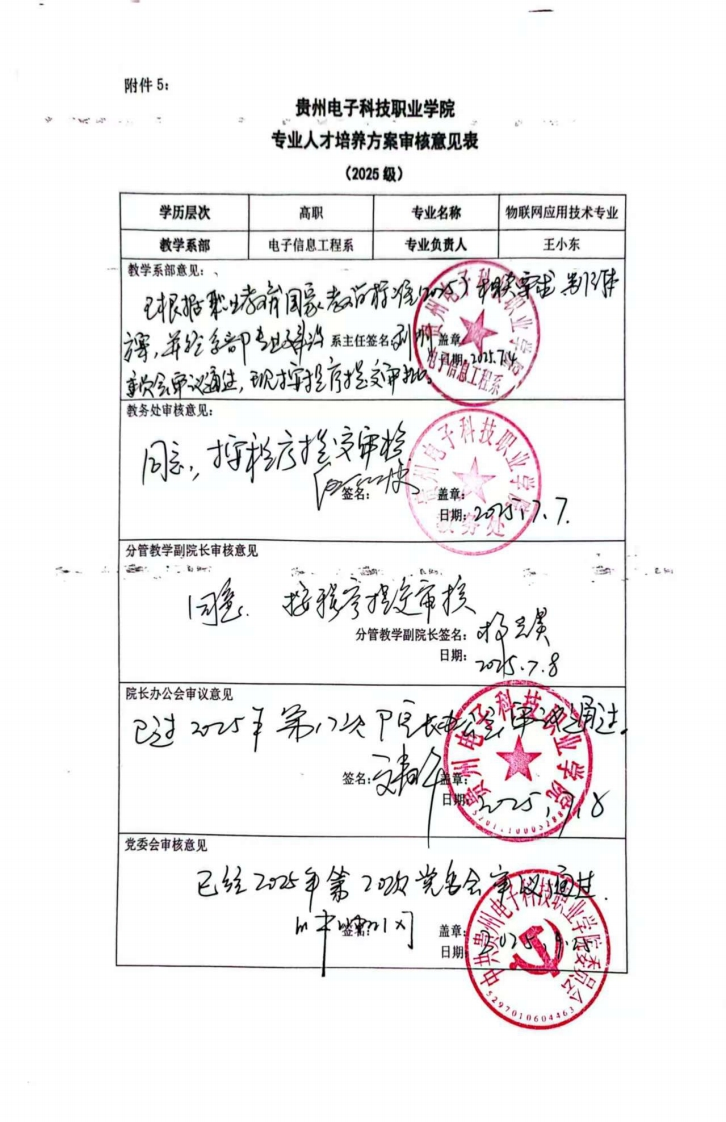 附件 5：
贵州电子科技职业学院
专业人才培养方案审核意见表
（2025 级）
学历层次 高职 专业名称 物联网应用技术专业
教学系部 电子信息工程系 专业负责人 王小东
教学系部意见：
已根据职业教育国家教学标准(2025)
方案，并经系部专业建设 系主任签名： 盖章：
日期：2025.7.4
委员会审议通过，现按程序提交审批。
贵州电子科技职业学院
电子信息工程系
教务处审核意见：
同意，按程序提交审核
签名： 盖章：
日期：2025.7.7.
贵州电子科技职业学院
教务处
分管教学副院长审核意见
同意. 按程序提交审核
分管教学副院长签名：
日期：2025.7.8
院长办公会审议意见
已过 2025年 第 院长办公会审议通过.
签名： 盖章：
日期：2025.7.18
贵州电子科技职业学院
党委会审核意见
已经2025年第20次党委会审议通过.
签名： 盖章：
日期：2025.
中共贵州电子科技职业学院委员会
5297010604463